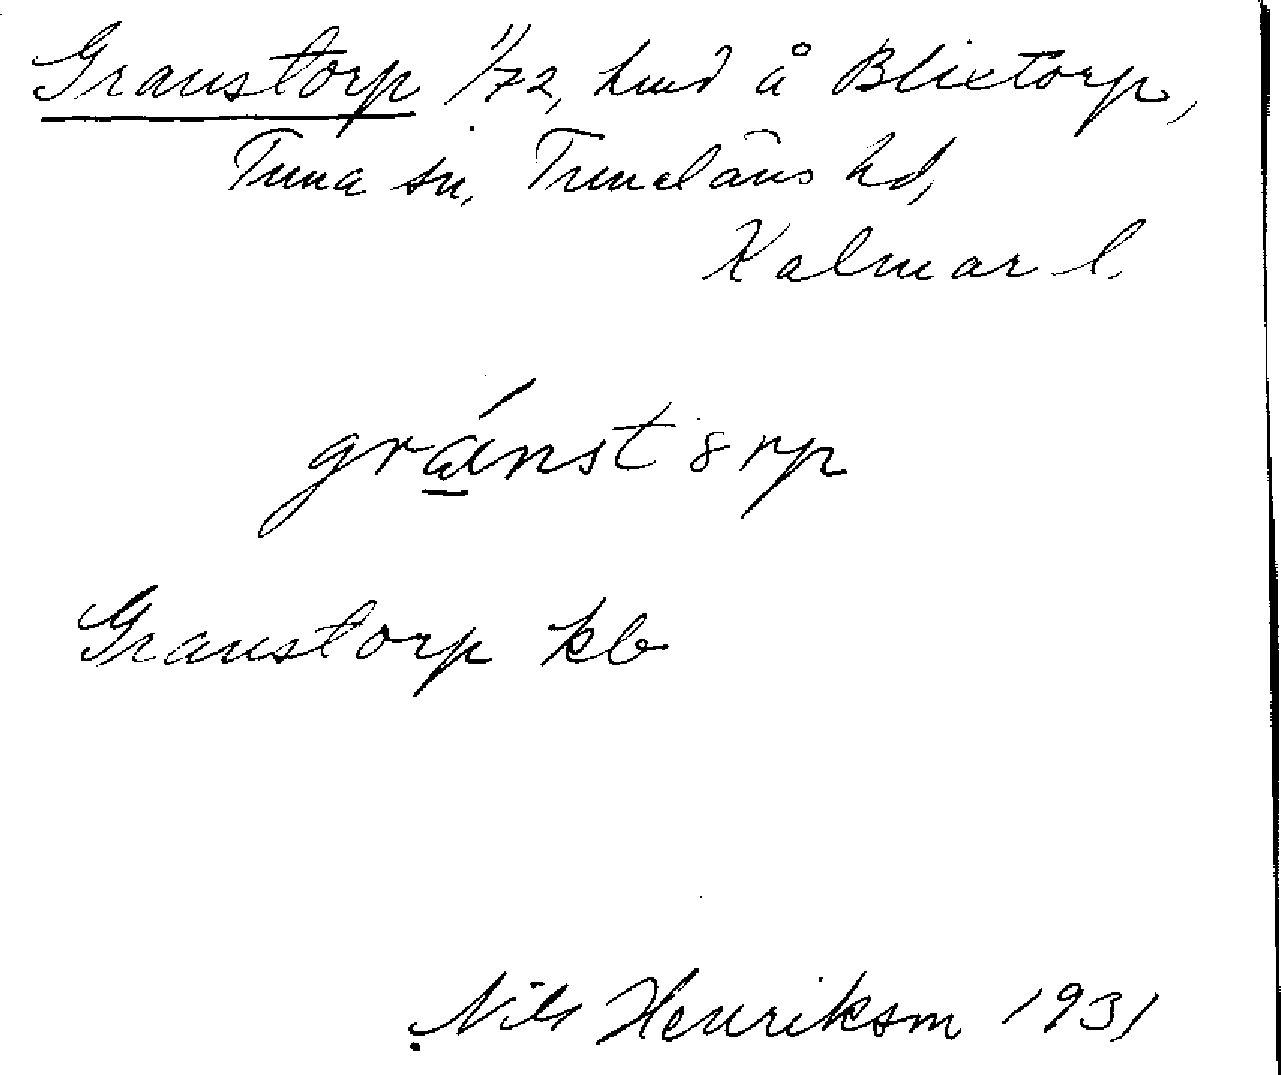 Granstorp 11/72, hmd å Blixtorp,
Tuna sn, Tunaläns hd,
Kalmar l.
gránst8rp
Granstorp kb
Nils Henrikson 1931